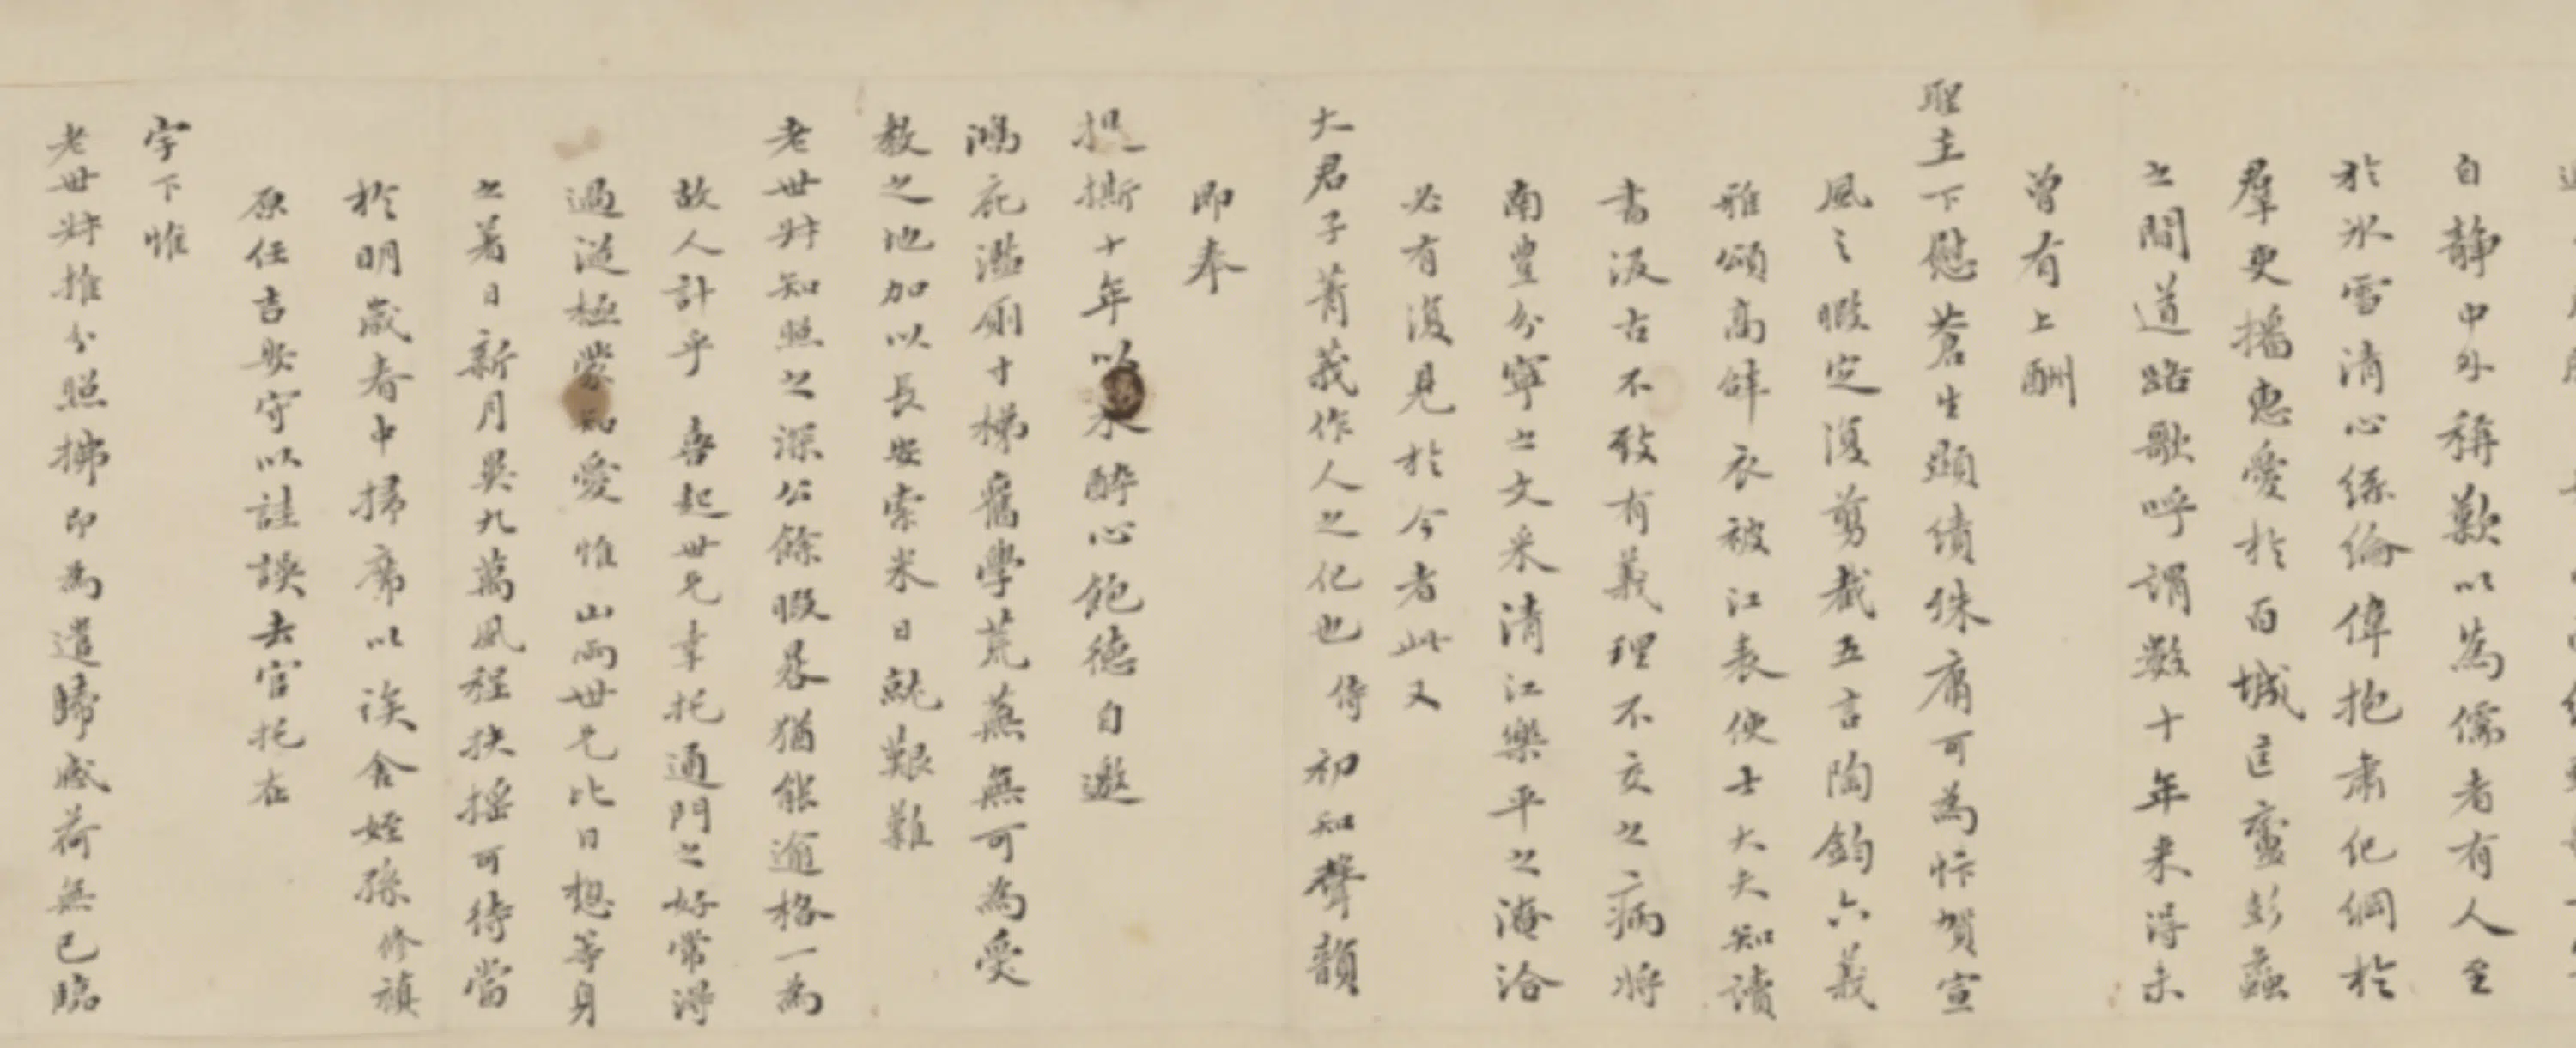 自靜中外稱歎以為儒者有人至
於冰雪清心絲綸偉抱肅紀綱於
羣吏播惠愛於百城匡廬彭蠡
之間道路歌呼謂數十年來得未
曾有上酬
聖主下慰蒼生顯績殊庸可為忭賀宣
風之暇定復剪裁五言陶鈞六義
雅頌高鋒衣被江表使士大夫知讀
書汲古不致有義理不交之病將
南豐分寧之文采清江樂平之淹洽
必有復見於今者此又
大君子菁莪作人之化也侍初知聲韻
即奉
提撕十年以來醉心飽德自邀
鴻庇濫廁寸梯舊學荒蕪無可為受
教之地加以長安索米日就艱難
老世叔知照之深公餘暇晷猶能逾格一為
故人計乎喜起世兄幸托通門之好常得
過從極蒙愛惟山雨世兄比日想等身
之著日新月異九萬風程扶搖可待當
於明歲春中掃席以俟舍姪孫修禎
原任吉安守以詿誤去官托在
宇下惟
老世叔推分照拂印為遣歸感荷無已臨